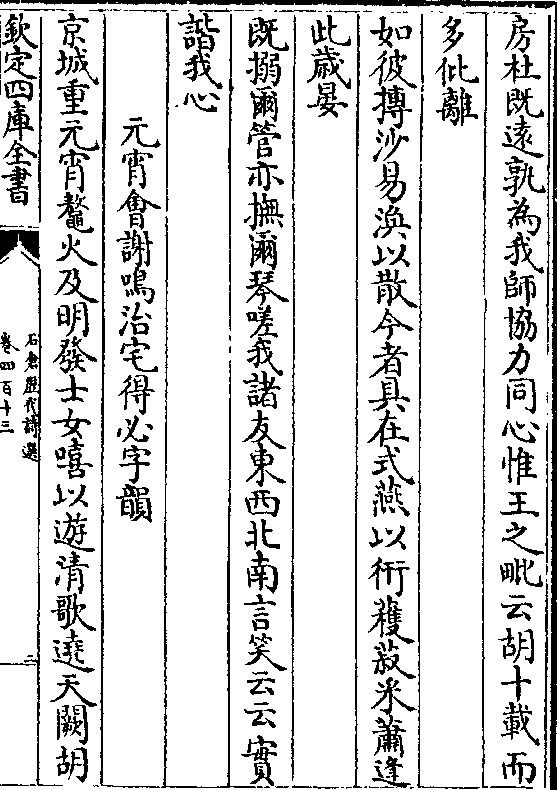 房杜既遠孰為我師協力同心惟王之毗云胡十載而
多仳離
如彼摶沙易渙以散今者具在式燕以衎穫菽采蕭逢
此歲晏
既搦爾管亦撫爾琴嗟我諸友東西北南言笑云云實
諧我心
元宵會謝鳴治宅得必字韻
京城重元宵鰲火及明發士女嘻以遊清歌遶天闕胡
欽定四庫全書
石倉歷代詩選
卷四百十三
二